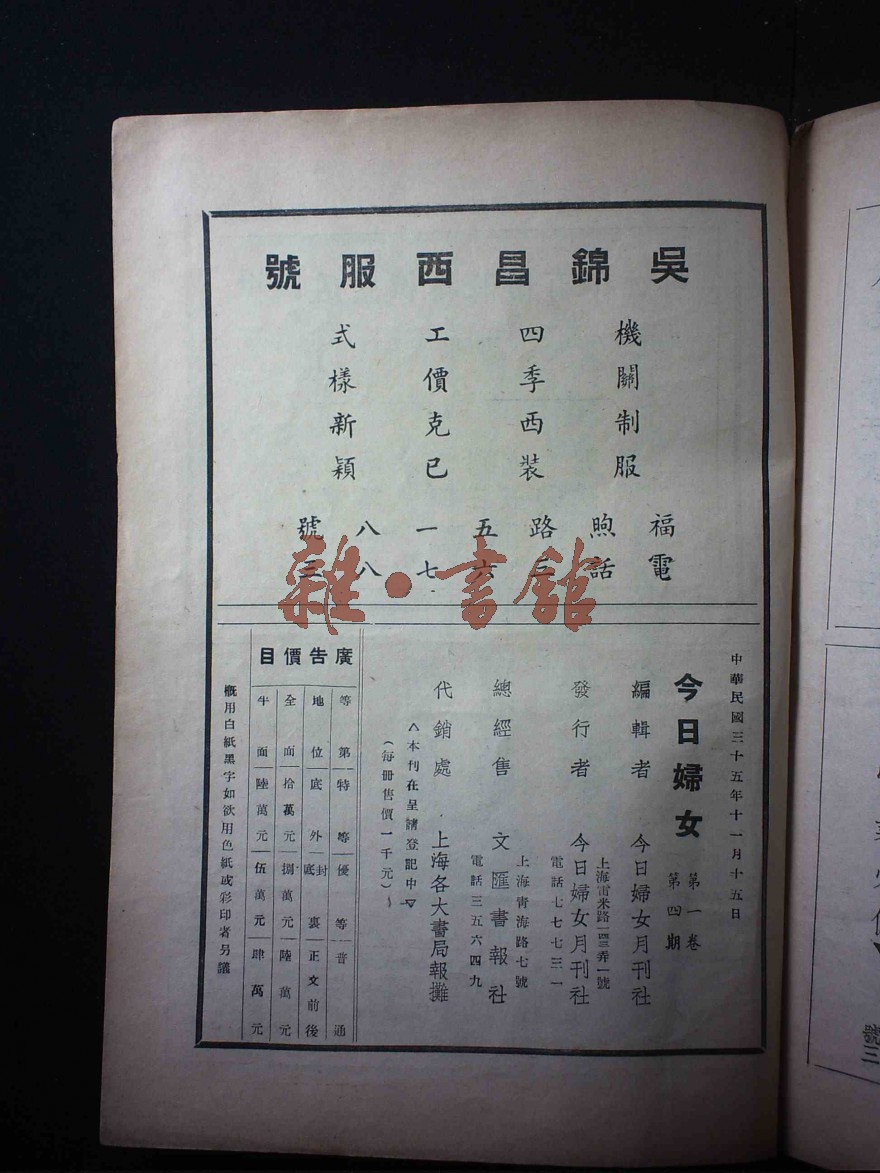 吳錦昌西服號
機關制服
四季西裝
工價克已
式樣新穎
福煦路五一八號
電話三六七八三
雜·書館
中華民國三十五年十一月十五日
今日婦女
第一卷
第四期
編輯者 今日婦女月刊社
上海雷米路一四三弄一號
發行者 今日婦女月刊社
電話七七七三一
上海青海路七號
總經售 文匯書報社
電話三五六四九
代銷處 上海各大書局報攤
︿本刊在呈請登記中﹀
(每冊售價一千元)
廣告價目
等第 特等 優等 普通
地位 底外 封底裏 正文前後
全面 拾萬元 捌萬元 陸萬元
半面 陸萬元 伍萬元 肆萬元
概用白紙黑字如欲用色紙或彩印者另議
號
三